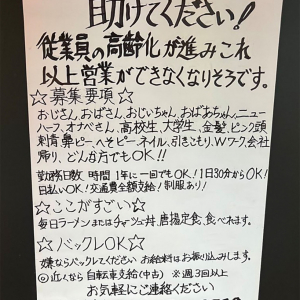 助けてください!
従業員の高齢化が進みこれ
以上営業ができなくなりそうです。
☆募集要項☆
おじさん、おばさん、おじいちゃん、おばあちゃん、ニュー
ハーフ、オナベさん、高校生、大学生、金髪、ピンク頭
刺青、鼻ピー、へそピー、ネイル、引きこもり、Wワーク会社
帰り、どんな方でもOK!!
勤務日数、時間 1年に一回でもOK!1日30分からOK!
日払いOK!交通費全額支給!制服あり!
☆ここがすごい☆
毎日ラーメンまたはチャーシュー丼、唐揚定食、食べれます。
☆バックレOK☆
嫌ならバックレてください お給料はお振り込みします。
◎近くなら自転車支給(中古) ※週3回以上
お気軽にご連絡ください